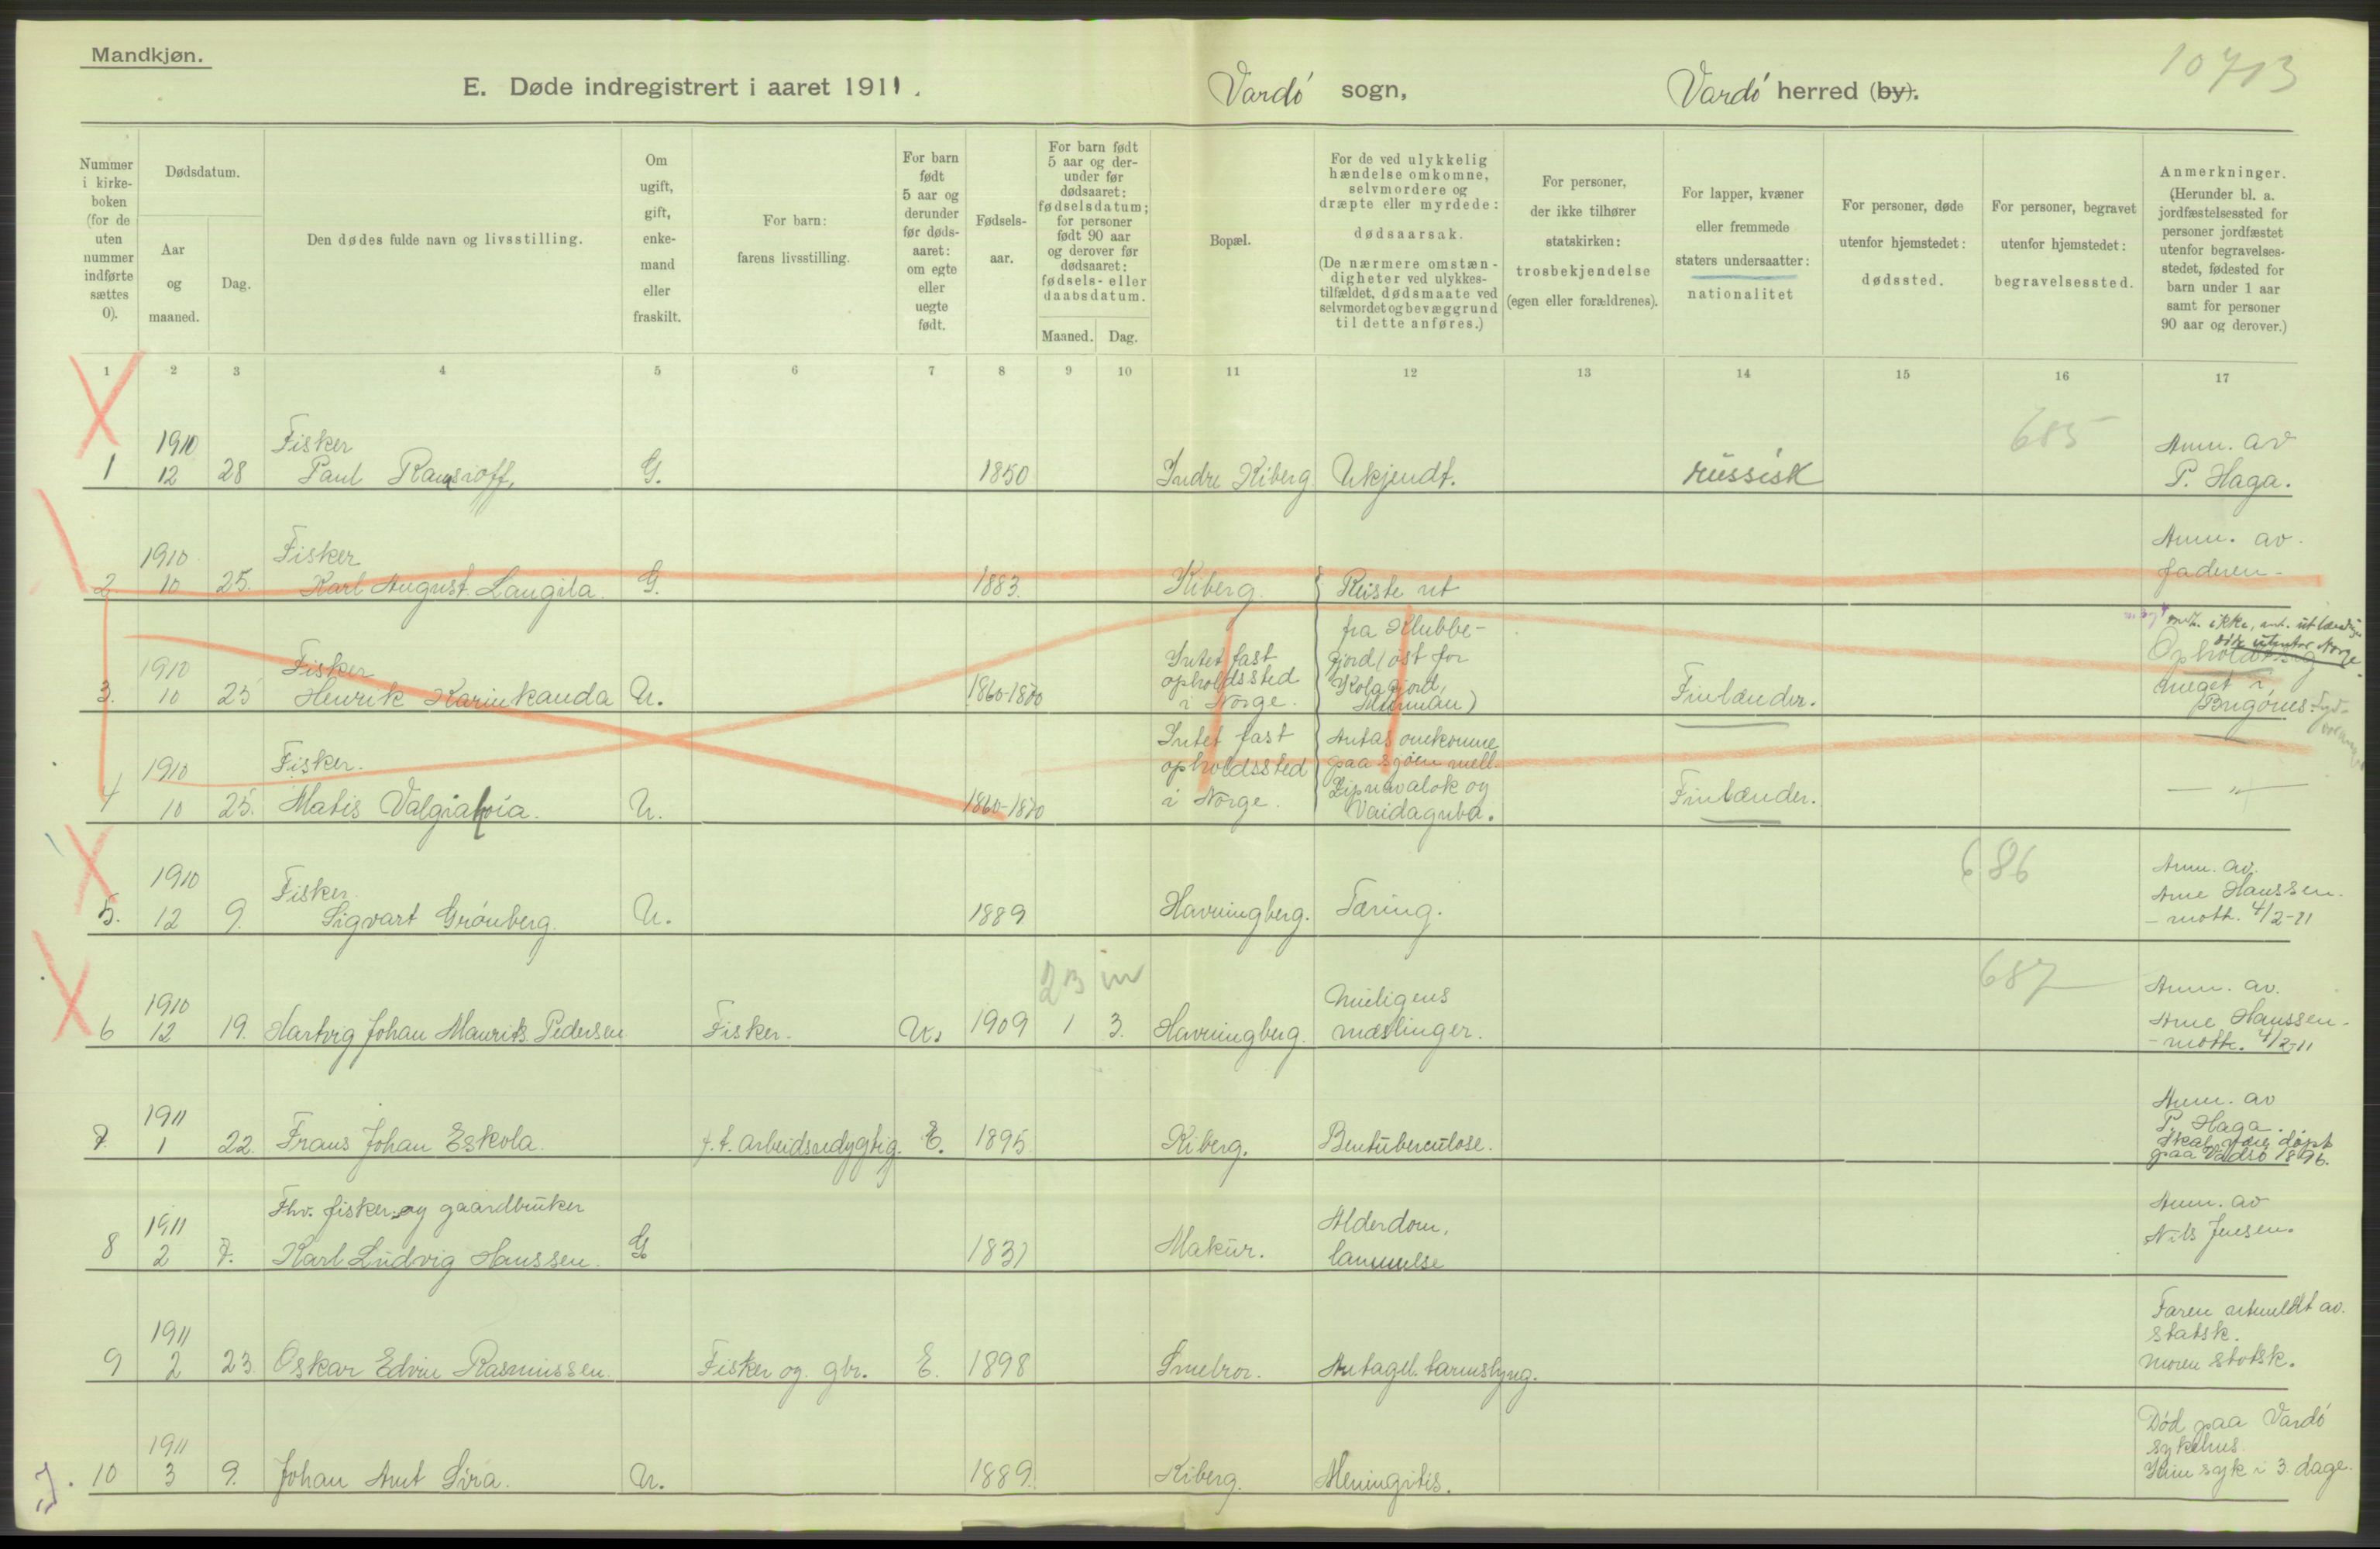 Mandkjøn.
10713
E. Døde indregistrert i aaret 1911.
Vardö sogn,
Vardö herred (by).
Nummer
i kirke-
boken
(for de
uten
nummer
indførte
sættes
0).
Dødsdatum.
Aar
og
maaned.
Dag.
Den dødes fulde navn og livsstilling.
Om
ugift,
gift,
enke-
mand
eller
fraskilt.
For barn:
farens livsstilling.
For barn
født
5 aar og
derunder
før døds-
aaret:
om egte
eller
uegte
født.
Fødsels-
aar.
For barn født
5 aar og der-
under før
dødsaaret:
fødselsdatum;
for personer
født 90 aar
og derover før
dødsaaret:
fødsels- eller
daabsdatum.
Maaned. Dag.
Bopæl.
For de ved ulykkelig
hændelse omkomne,
selvmordere og
dræpte eller myrdede:
dødsaarsak.
(De nærmere omstæn-
digheter ved ulykkes-
tilfældet, dødsmaate ved
selvmordet og bevæggrund
til dette anføres.)
For personer,
der ikke tilhører
statskirken:
trosbekjendelse
(egen eller forældrenes).
For lapper, kvæner
eller fremmede
staters undersaatter:
nationalitet
For personer, døde
utenfor hjemstedet:
dødssted.
For personer, begravet
utenfor hjemstedet:
begravelsessted.
Anmerkninger.
(Herunder bl. a.
jordfæstelsessted for
personer jordfæstet
utenfor begravelses-
stedet, fødested for
barn under 1 aar
samt for personer
90 aar og derover.)
1 2 3 4 5 6 7 8 9 10 11 12 13 14 15 16 17
1910 Fisker 685 Anm. av
1 12 28 Paul G. 1850 Indre Kiberg Ukjendt. russisk P. Haga.
1910 Fisker Anm. av
2 10 25. Karl August Laugila. G. 1883. Kiberg. Reiste ut faderen
fra Klubbe-
fjord (øst for
Kolafjord,
Murman)
Antas omkomne
paa sjøen mell.
Zipnavalok og
Vaidaguba.
1910 Fisker Intet fast
opholdssted
3. 10 25 Henrik Karinkanda U. 1860-1870 i Norge. Finlænder.
døde utenfor Norge.
meget i
Bugönes
1910 Fisker. Intet fast
opholdssted
4 10 25. Matis U. 1860-1870 i Norge. Finlænder. — „ —
1910 Fisker. 686 Anm. av.
Arne Hanssen.
5. 12 9. Sigvart Grönberg. U. 1889 Havningberg. Tæring. – mott. 4/2-11
23 m 687 Anm. av.
1910 Muligens Arne Hanssen.
6 12 19. Hartvig Johan Maurits Pedersen Fisker. U. 1909 1 3. Havningberg. mæslinger. – mott. 4/2-11
1911 Anm. av
P. Haga.
7. 1 22. Frans Johan Eskola. f. t. arbeidsudygtig. E. 1895 Kiberg. Bentuberculose. Skal være döpt
paa Vadsö 1896.
Fhv. fisker og gaardbruker Anm. av
1911 Alderdom, Nils Jensen.
8 2 7. Karl Ludvig Hanssen. G 1831 Makur. lammelse
Faren utmeldt av.
1911 statsk.
9 2 23. Oskar Edvin Rasmussen. Fisker og gbr. E. 1898 Smelror. Antagel. tarmslyng. moren statsk.
Död paa Vardö
1911 sykehus.
10 3 9. Johan Arnt Sira. U. 1889. Kiberg. Meningitis. Kun syk i 3. dage.
J.